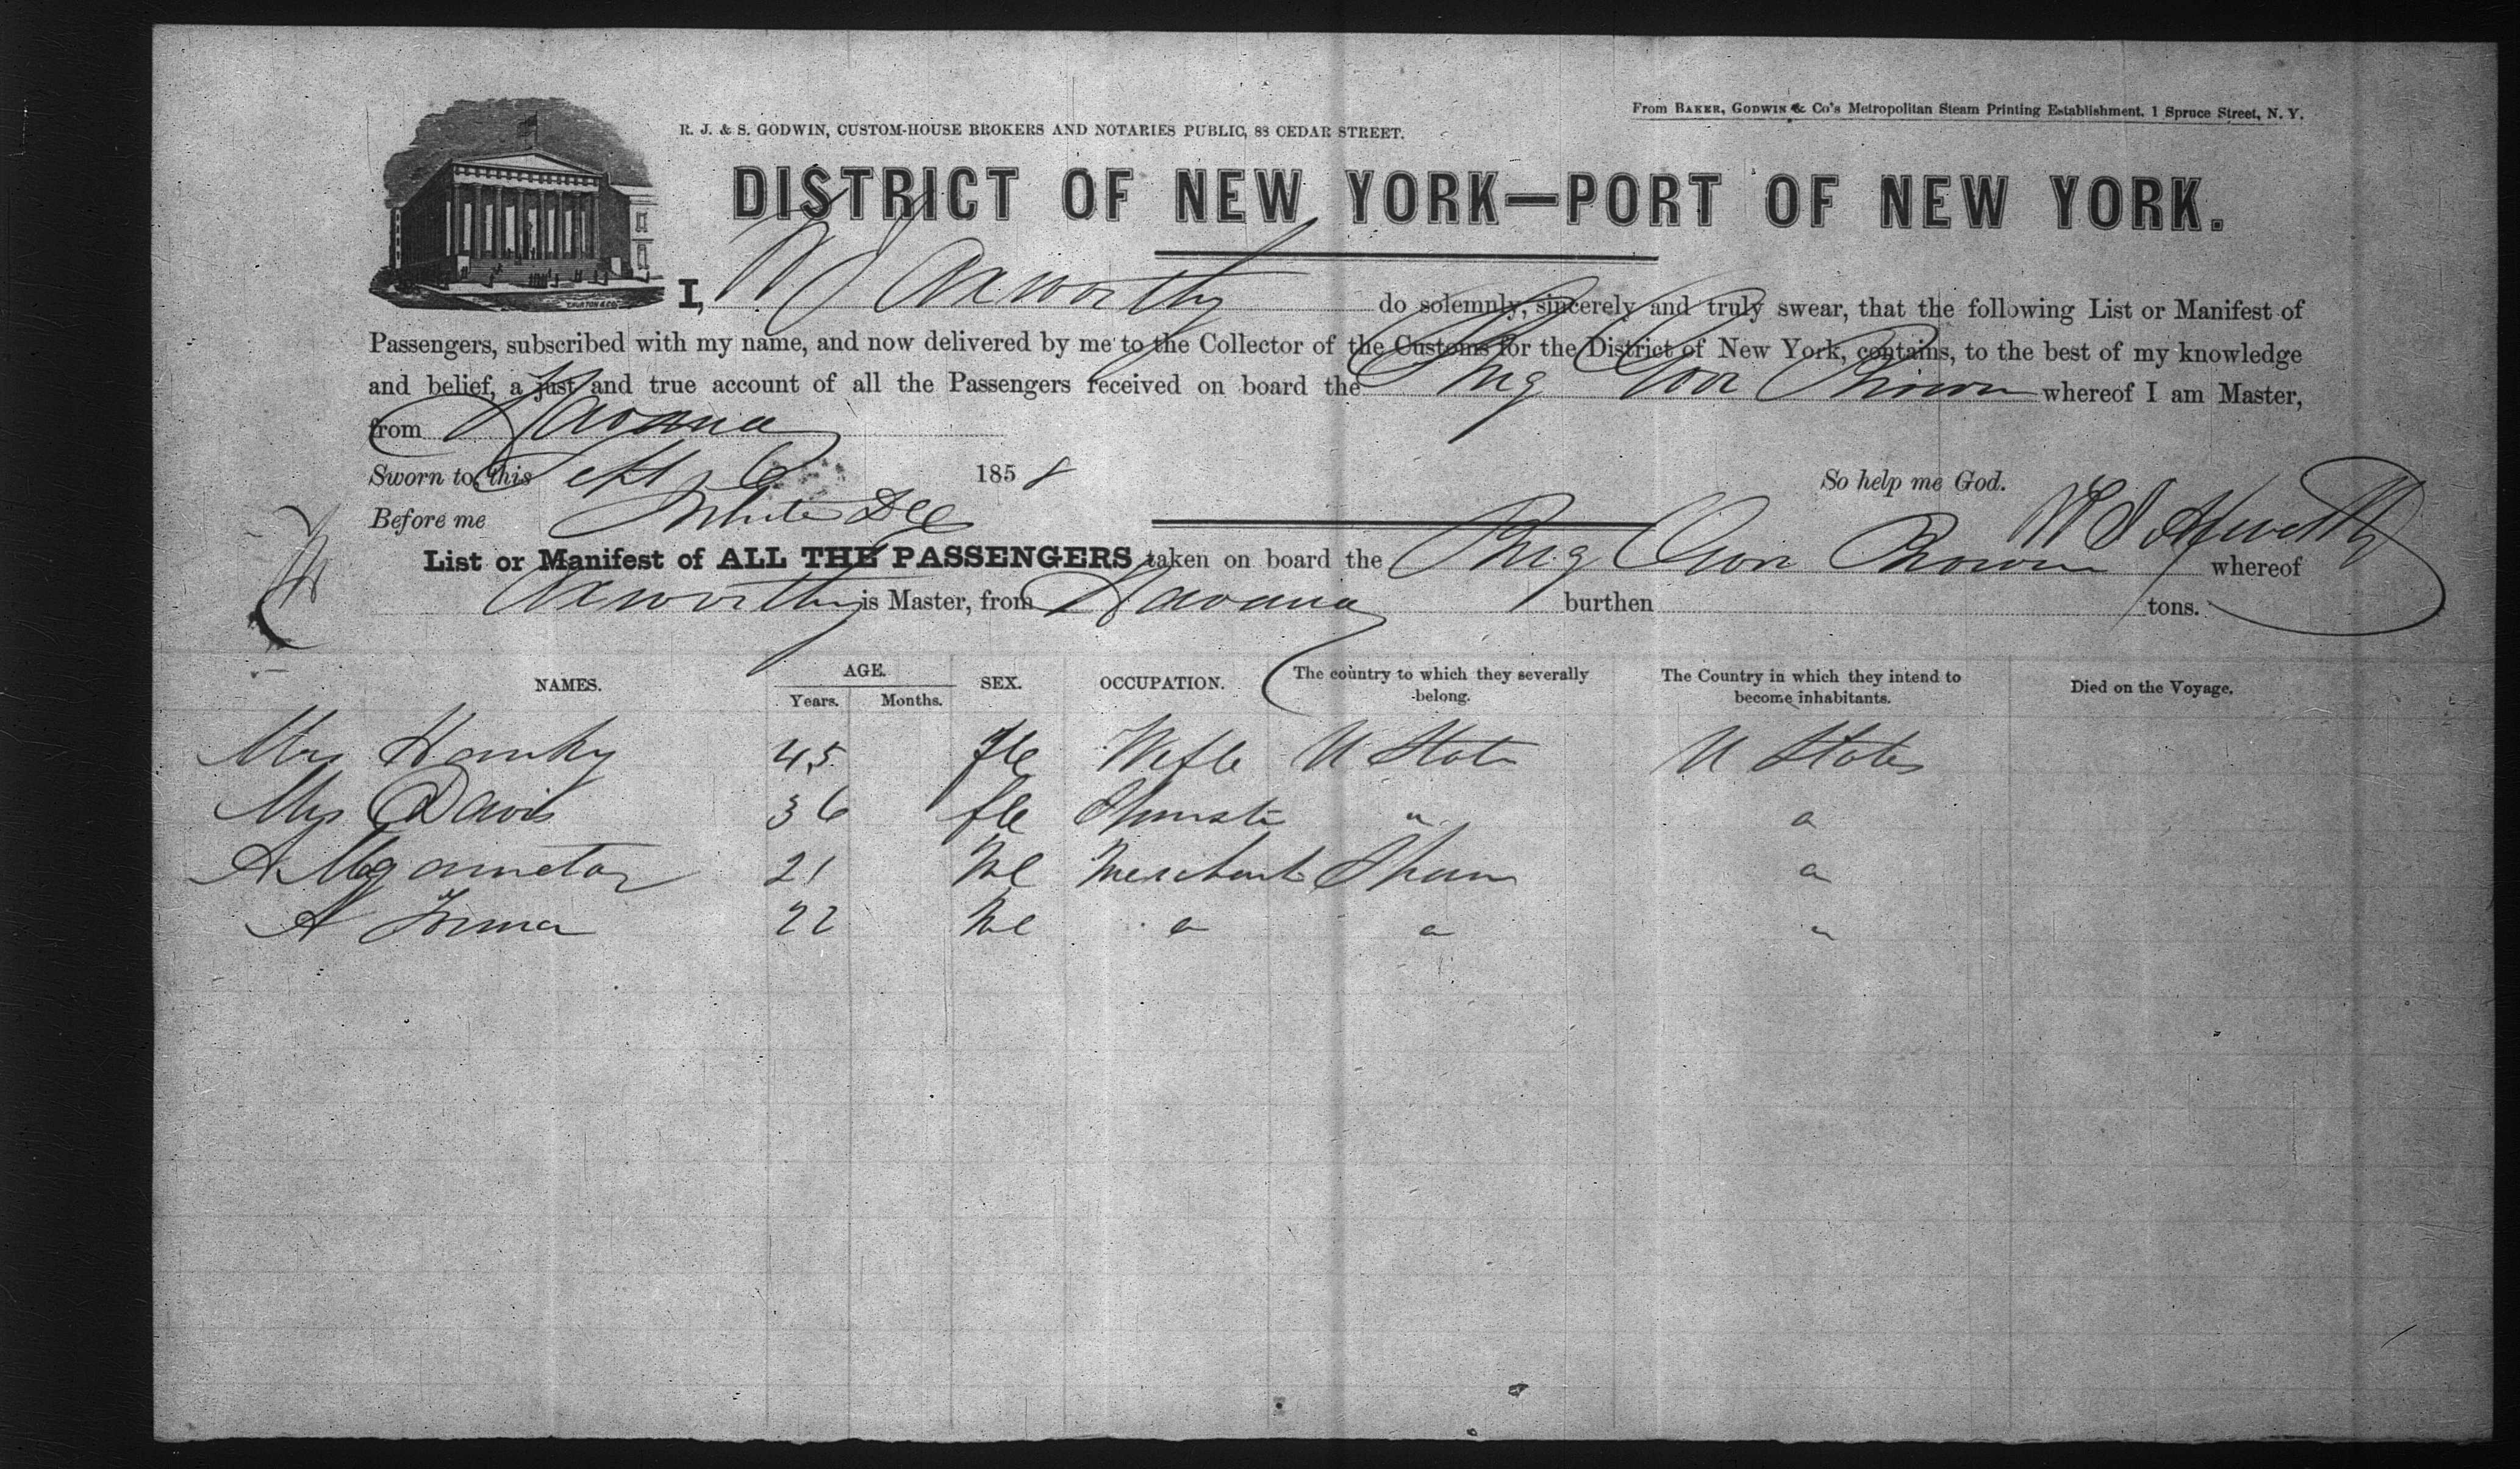 From BAKER, GODWIN & Co's Metropolitan Steam Printing Establishment, 1 Spruce Street, N. Y.
R. J. & S. GODWIN, CUSTOM-HOUSE BROKERS AND NOTARIES PUBLIC, 88 CEDAR STREET.
DISTRICT OF NEW YORK—PORT OF NEW YORK.
I, W J Axworthy do solemnly, sincerely and truly swear, that the following List or Manifest of
Passengers, subscribed with my name, and now delivered by me to the Collector of the Customs for the District of New York, contains, to the best of my knowledge
and belief, a just and true account of all the Passengers received on board the Brig Gov Brown whereof I am Master,
from Havana
Sworn to this Sept 6 1858 So help me God.
Before me White
List or Manifest of ALL THE PASSENGERS taken on board the Brig Gov Brown whereof
Axworthy is Master, from Havana burthen tons.
NAMES. AGE. SEX. OCCUPATION. The country to which they severally belong. The Country in which they intend to become inhabitants. Died on the Voyage.
Years. Months.
Mrs 45 fle Wife U State U States
Mrs Davis 36 fle " "
A 21 Ml Merchant Spain "
A 22 Ml " " "